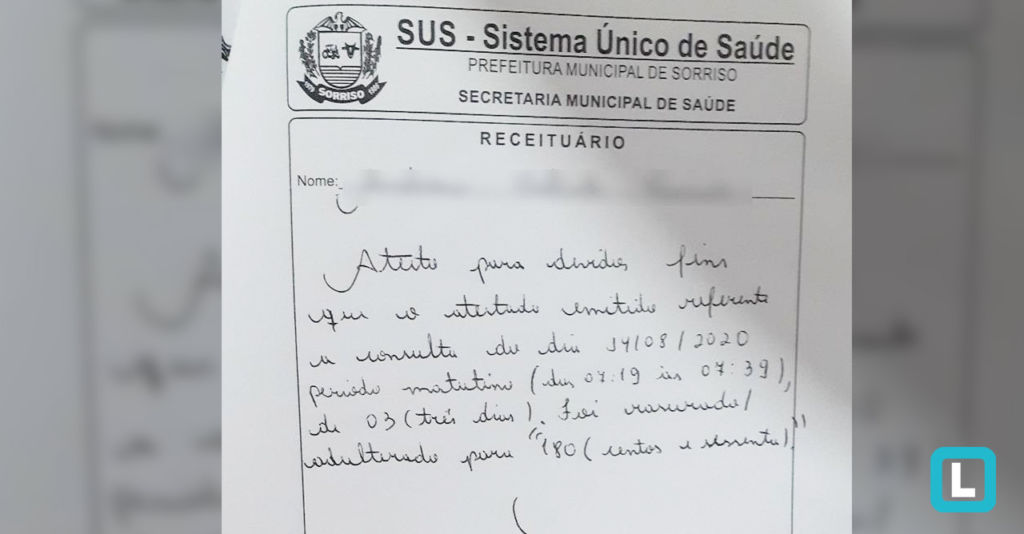 SUS - Sistema Único de Saúde
PREFEITURA MUNICIPAL DE SORRISO
SECRETARIA MUNICIPAL DE SAÚDE
SORRISO
RECEITUÁRIO
Nome:
Atesto para devidos fins
que o atestado emitido referente
a consulta do dia 14/08/2020
período matutino (das 07:19 às 07:39),
de 03 (três dias). Foi rasurado/
adulterado para "180 (centos e sessenta)"
L